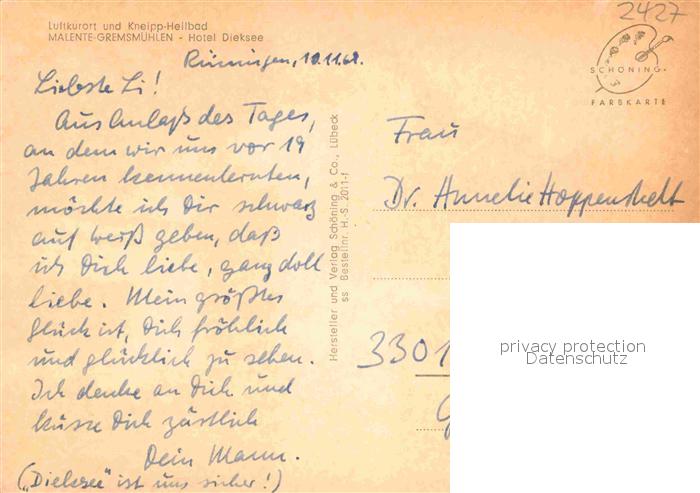 2427
Luftkurort und Kneipp-Heilbad
MALENTE-GREMSMÜHLEN - Hotel Dieksee
SCHÖNING
FARBKARTE
Rüningen, 10.11.68.
Liebste Li!
Aus Anlaß des Tages,
an dem wir uns vor 19
Jahren kennenlernten,
möchte ich Dir schwarz
auf weiß geben, daß
ich Dich liebe, ganz doll
liebe. Mein größtes
Glück ist, Dich fröhlich
und glücklich zu sehen.
Ich denke an Dich und
küsse Dich zärtlich
Dein Mann.
("Dieksee" ist uns sicher!)
Hersteller und Verlag Schöning & Co., Lübeck
ss Bestellnr. H.-S. 2011-f
Frau
Dr. Annelie Hoppenstedt
3301
privacy protection
Datenschutz